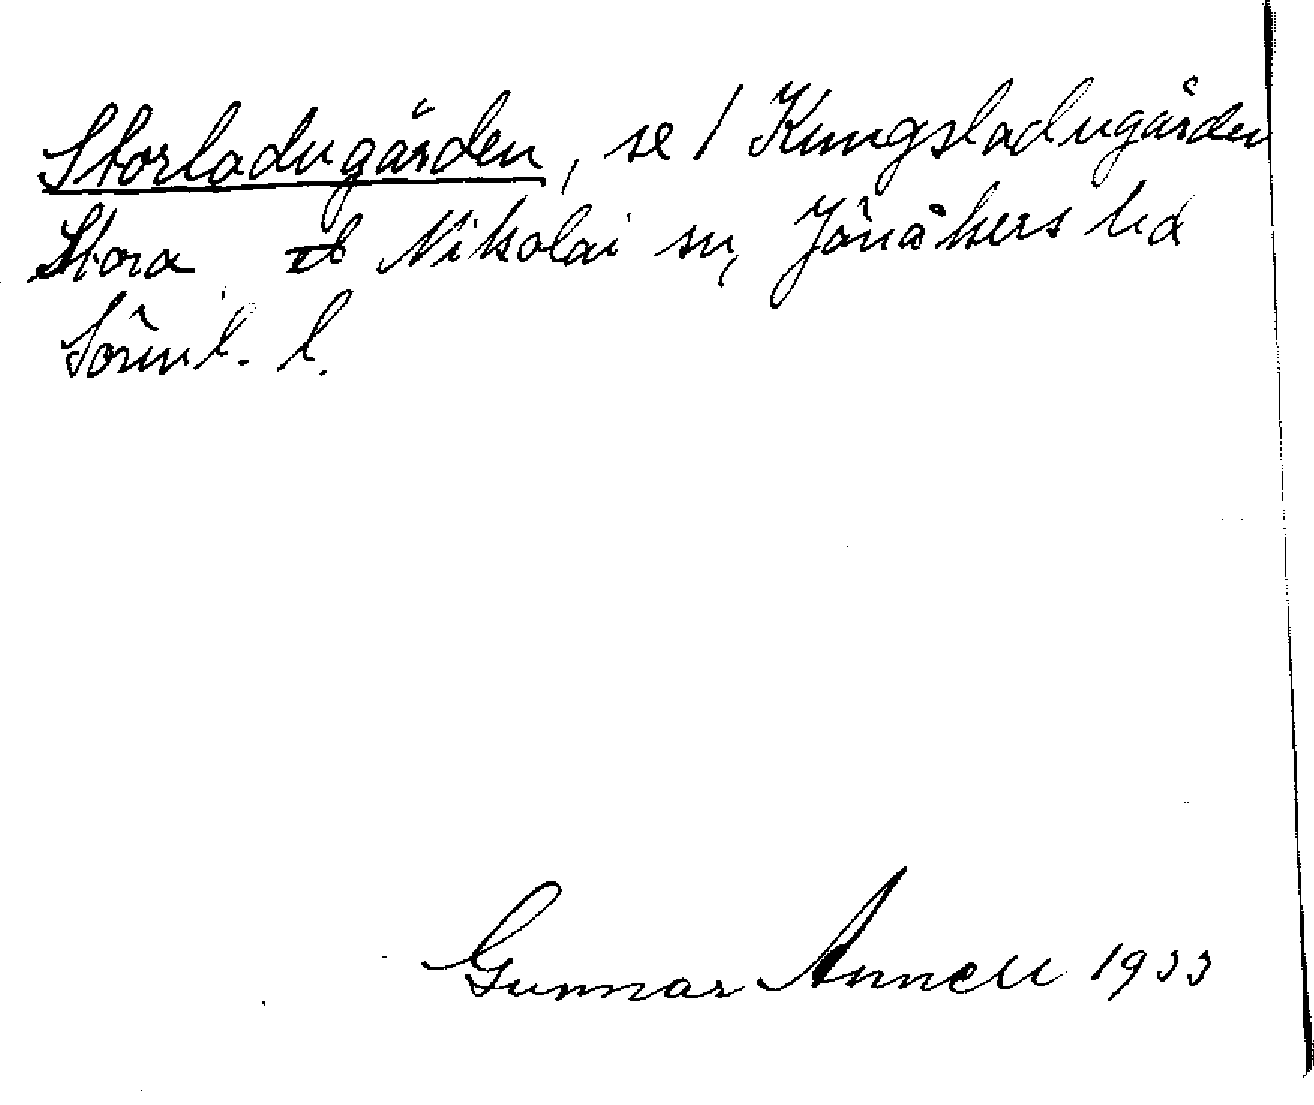 Storladugården, se / Kungsladugården
Stora Nikolai sn, Jönåkers hd
Sörml. l.
Gunnar Annell 1933